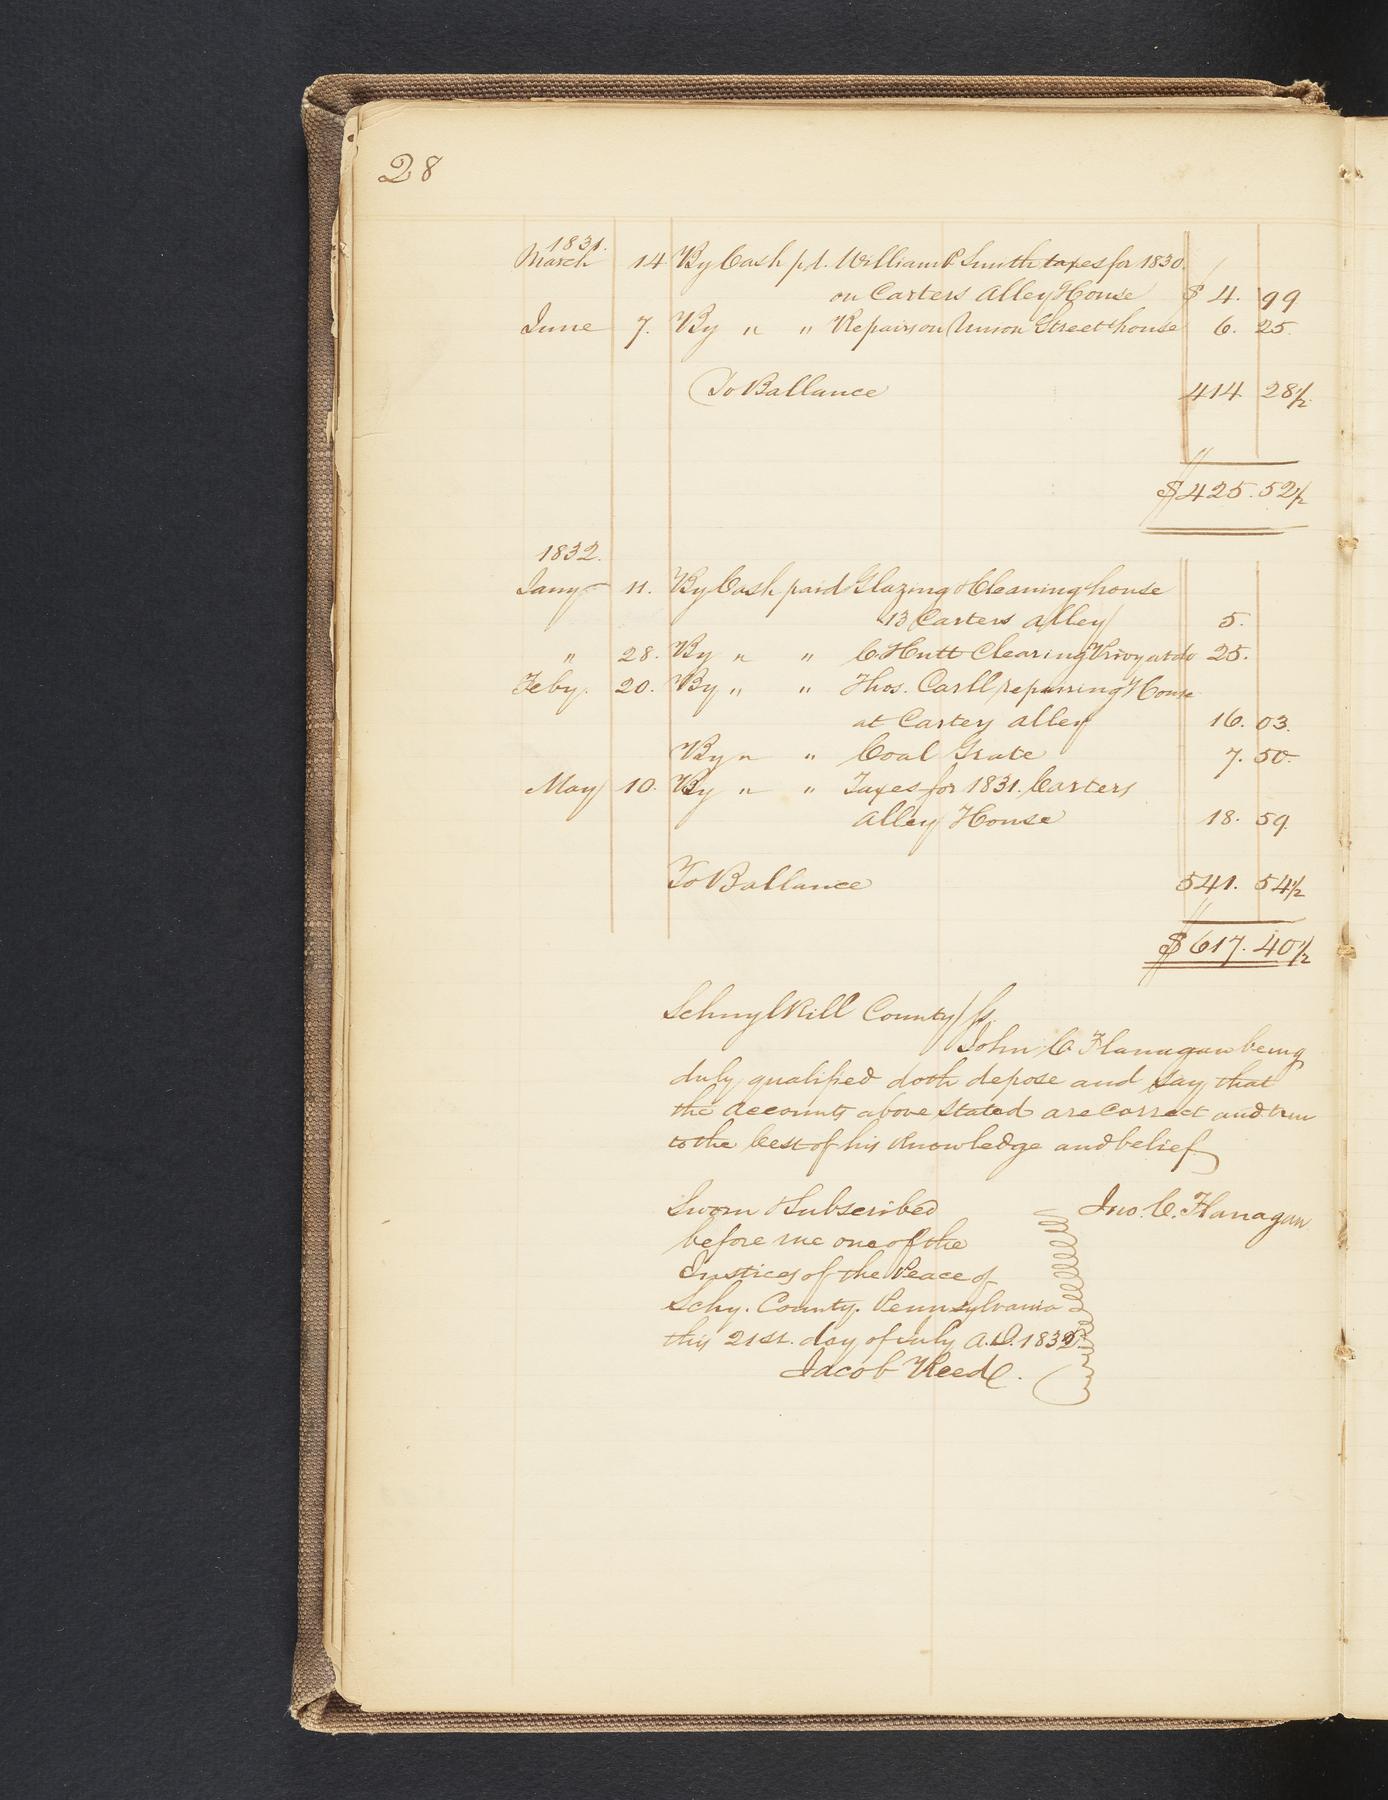 28
1831.
March 14 By Cash pd. William P. Smith taxes for 1830.
on Carters Alley House $ 4. 99
June 7. By " " Repairs on Union Street house 6. 25.
To Ballance 414. 28½
$425. 52½
1832.
Jany 11. By Cash paid Glazing & Cleaning house
13 Carters alley 5.
" 28. By " " C. Hutt Clearing Privy at do 25.
Feby. 20. By " " Thos. Carll repairing House
at Carters alley 16. 03.
By " " Coal Grate 7. 50.
May 10. By " " Taxes for 1831. Carters
Alley House 18. 59.
To Ballance 541. 54½
$617. 40½
Schuylkill County Ss.
John C Flanagan being
duly qualified doth depose and say that
the accounts above stated are correct and true
to the best of his knowledge and belief
Sworn & Subscribed
Jno. C. Flanagan
before me one of the
Justices of the Peace of
Schy. County. Pennsylvania
this 21st. day of July A.D. 1832.
Jacob Reed.